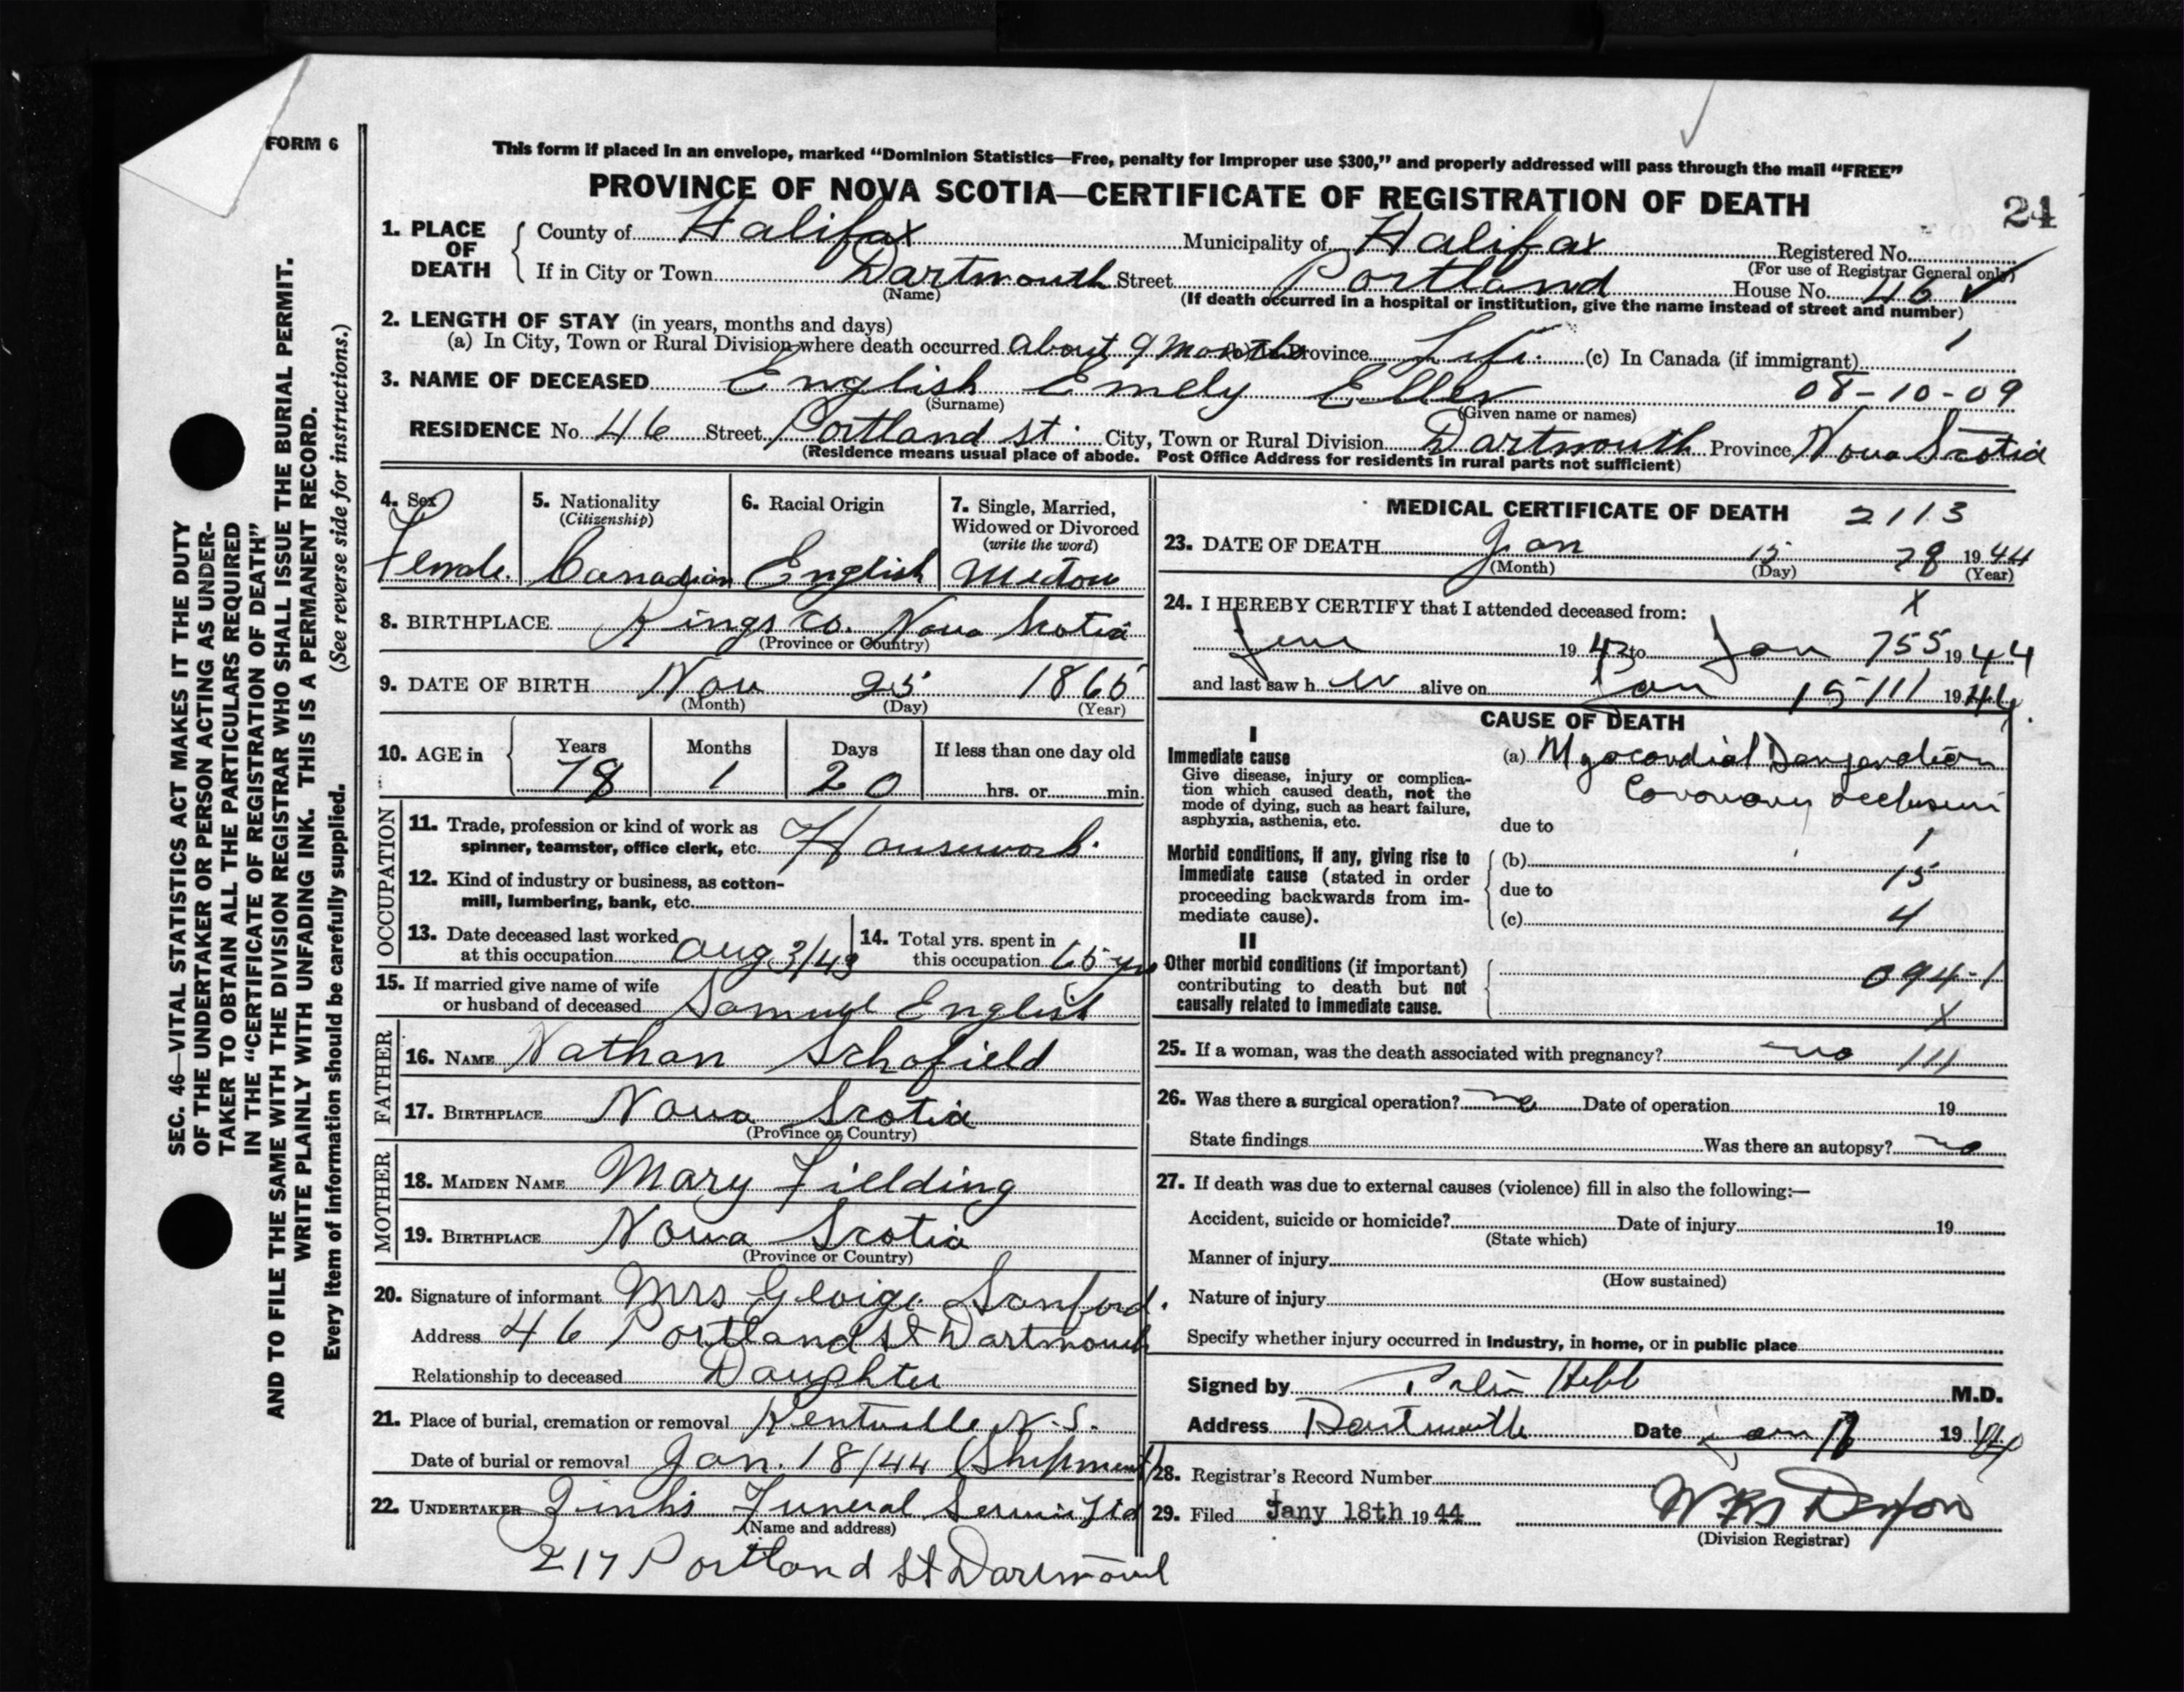 FORM 6
This form if placed in an envelope, marked “Dominion Statistics—Free, penalty for improper use $300,” and properly addressed will pass through the mail “FREE”
PROVINCE OF NOVA SCOTIA—CERTIFICATE OF REGISTRATION OF DEATH
24
1. PLACE OF DEATH
County of Halifax Municipality of Halifax Registered No.
(For use of Registrar General only)
If in City or Town Dartmouth Street Portland House No. 46
(Name) (If death occurred in a hospital or institution, give the name instead of street and number)
2. LENGTH OF STAY (in years, months and days)
(a) In City, Town or Rural Division where death occurred about 9 months Province Life (c) In Canada (if immigrant) 1
3. NAME OF DECEASED English Emely Ellen 08-10-09
(Surname) (Given name or names)
RESIDENCE No. 46 Street Portland St. City, Town or Rural Division Dartmouth Province Nova Scotia
(Residence means usual place of abode. Post Office Address for residents in rural parts not sufficient)
4. Sex
Female.
5. Nationality
(Citizenship)
Canadian
6. Racial Origin
English
7. Single, Married,
Widowed or Divorced
(write the word)
8. BIRTHPLACE Kings Co. Nova Scotia
(Province or Country)
9. DATE OF BIRTH Nov 25 1865
(Month) (Day) (Year)
10. AGE in
Years Months Days If less than one day old
78 1 20 hrs. or min.
OCCUPATION
11. Trade, profession or kind of work as
spinner, teamster, office clerk, etc. Housework.
12. Kind of industry or business, as cotton-
mill, lumbering, bank, etc.
13. Date deceased last worked
at this occupation Aug 3/43
14. Total yrs. spent in
this occupation 65 yrs
15. If married give name of wife
or husband of deceased Samuel English
FATHER
16. NAME Nathan Schofield
17. BIRTHPLACE Nova Scotia
(Province or Country)
MOTHER
18. MAIDEN NAME Mary Fielding
19. BIRTHPLACE Nova Scotia
(Province or Country)
20. Signature of informant Mrs George Sanford.
Address 46 Portland St Dartmouth
Relationship to deceased Daughter
21. Place of burial, cremation or removal Kentville N.S.
Date of burial or removal Jan. 18/44 (Shipment)
22. UNDERTAKER Funeral Service Ltd
(Name and address)
217 Portland St Dartmouth
MEDICAL CERTIFICATE OF DEATH 2113
23. DATE OF DEATH Jan 15 78 1944
(Month) (Day) (Year)
24. I HEREBY CERTIFY that I attended deceased from: X
1943 to Jan 755 1944
and last saw h er alive on Jan 15 111 1944.
CAUSE OF DEATH
I
Immediate cause
Give disease, injury or complica-
tion which caused death, not the
mode of dying, such as heart failure,
asphyxia, asthenia, etc.
(a) Myocardial
Coronary occlusion
due to
1
Morbid conditions, if any, giving rise to
immediate cause (stated in order
proceeding backwards from im-
mediate cause).
(b) 15
due to
(c) 4
II
Other morbid conditions (if important)
contributing to death but not
causally related to immediate cause.
094-1
X
25. If a woman, was the death associated with pregnancy? no 111
26. Was there a surgical operation? no Date of operation 19
State findings Was there an autopsy? no
27. If death was due to external causes (violence) fill in also the following:—
Accident, suicide or homicide? Date of injury 19
(State which)
Manner of injury
(How sustained)
Nature of injury
Specify whether injury occurred in industry, in home, or in public place
Signed by Hebb M.D.
Address Dartmouth Date Jan 1944
28. Registrar's Record Number
29. Filed Jany 18th 1944
(Division Registrar)
SEC. 46—VITAL STATISTICS ACT MAKES IT THE DUTY
OF THE UNDERTAKER OR PERSON ACTING AS UNDER-
TAKER TO OBTAIN ALL THE PARTICULARS REQUIRED
IN THE “CERTIFICATE OF REGISTRATION OF DEATH”
AND TO FILE THE SAME WITH THE DIVISION REGISTRAR WHO SHALL ISSUE THE BURIAL PERMIT.
WRITE PLAINLY WITH UNFADING INK. THIS IS A PERMANENT RECORD.
Every item of information should be carefully supplied. (See reverse side for instructions.)